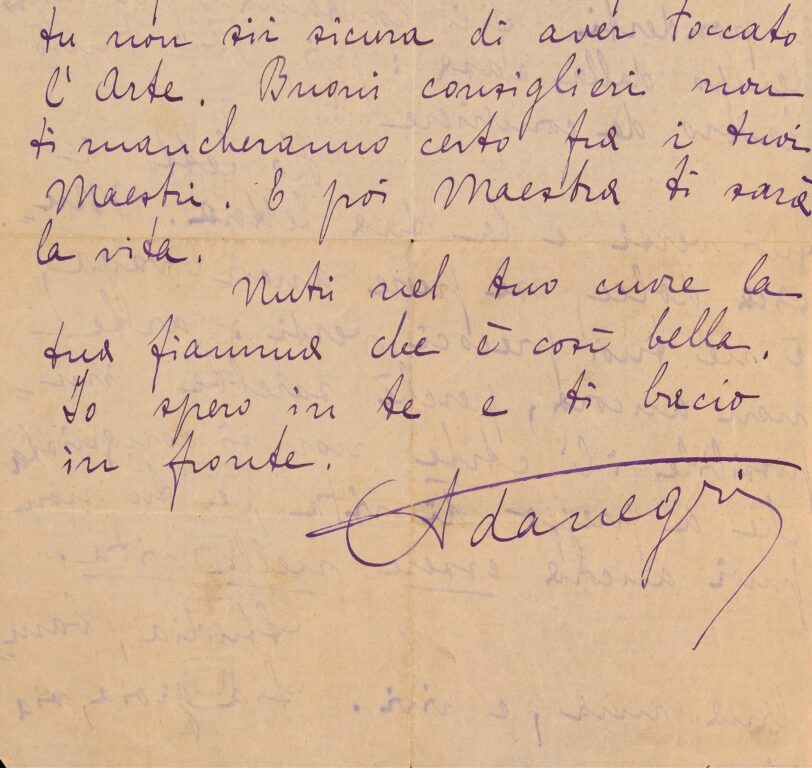 tu non sii sicura di aver toccato
l'Arte. Buoni consiglieri non
ti mancheranno certo fra i tuoi
Maestri. E poi Maestra ti sarà
la vita.
Nutri nel tuo cuore la
tua fiamma che è così bella.
Io spero in te e ti bacio
in fronte.
Adanegri